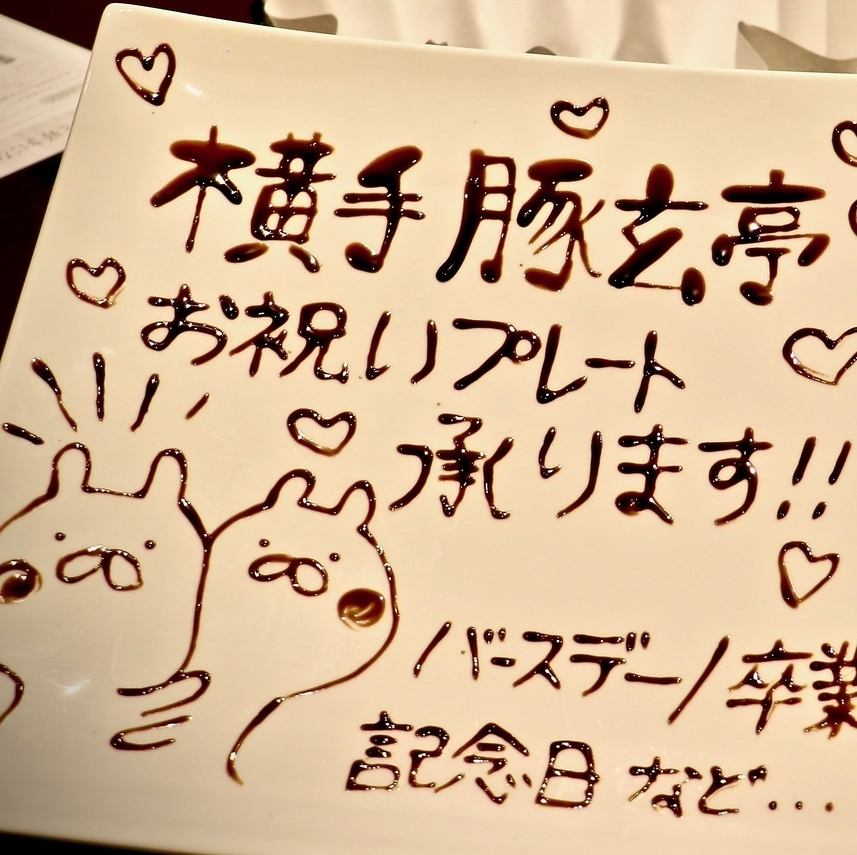 横手 豚玄亭
お祝いプレート
承ります!!
バースデー/卒業
記念日 など...